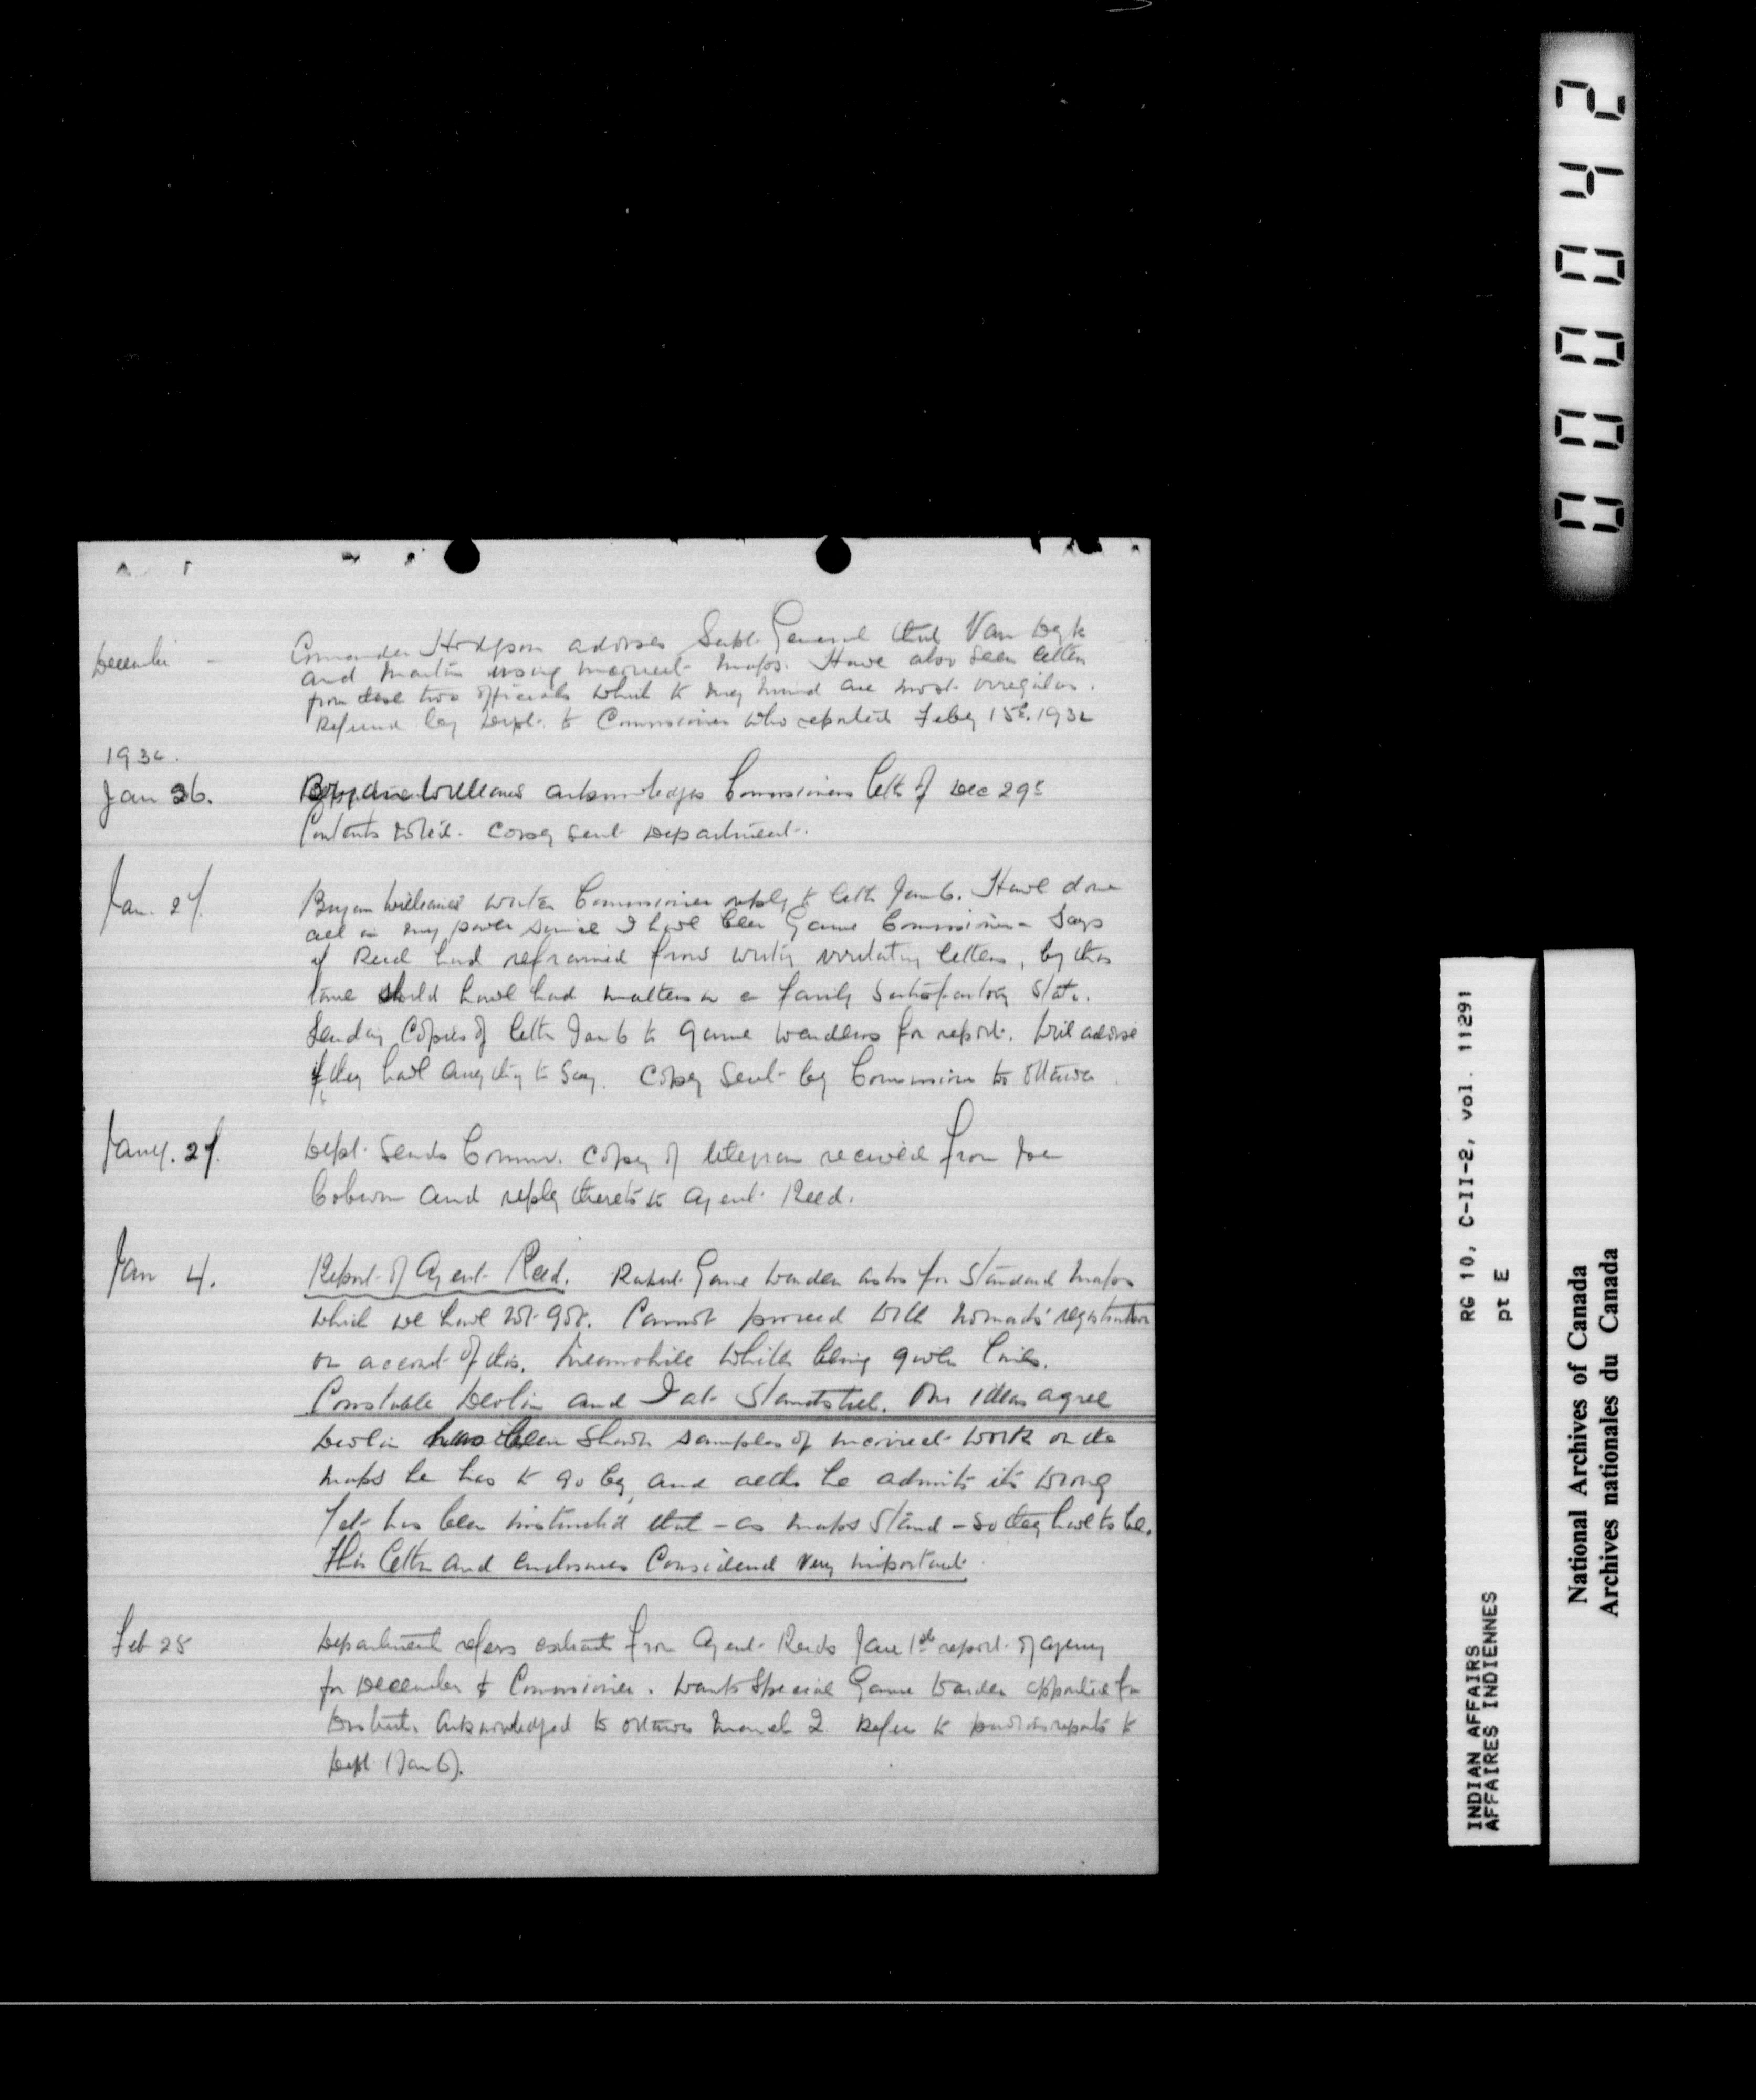 December - Commander Hodgson advises Supt. General that Van Dyk
and Martin using incorrect maps. Have also seen letters
from these two officials which to my mind are most irregular.
Referred by Dept. to Commissioner who reported Feby 15th. 1932
1932.
Jan 26. Bryan Williams acknowledges Commissioners letter of Dec 29th
Contents noted. Copy sent Department.
Jan. 27. Bryan Williams writes Commissioner reply to letter Jan 6. Have done
all in my power since I have been Game Commissioner - Says
if Reed had refrained from writing irritating letters, by this
time should have had matters in a fairly satisfactory state.
Sending copies of letter Jan 6 to Game Wardens for report. Will advise
if they have anything to say. Copy sent by Commissioner to Ottawa.
Jany. 27. Dept. sends Commr. copy of telegram received from Joe
Coburn and reply thereto to Agent Reed.
Jan 4. Report of Agent Reed. Game Warden asks for standard maps
which we have not got. Cannot proceed with nomads' registration
on account of this. Meanwhile whites being given lines.
Constable Devlin and I at standstill. Our ideas agree
Devlin has been shown samples of incorrect work on the
maps he has to go by, and altho he admits its wrong
Yet has been instructed that - as maps stand - so they have to be.
This letter and enclosures considered very important.
Feb 25 Department refers extracts from Agent Reeds Jan 1st report of agency
for December to Commissioner. Wants Special Game Warden appointed for
District. Acknowledged to Ottawa March 2. Refer to previous reports to
Dept. (Jan 6).
000042
RG 10, C-II-2, vol. 11291
pt E
INDIAN AFFAIRS
AFFAIRES INDIENNES
National Archives of Canada
Archives nationales du Canada